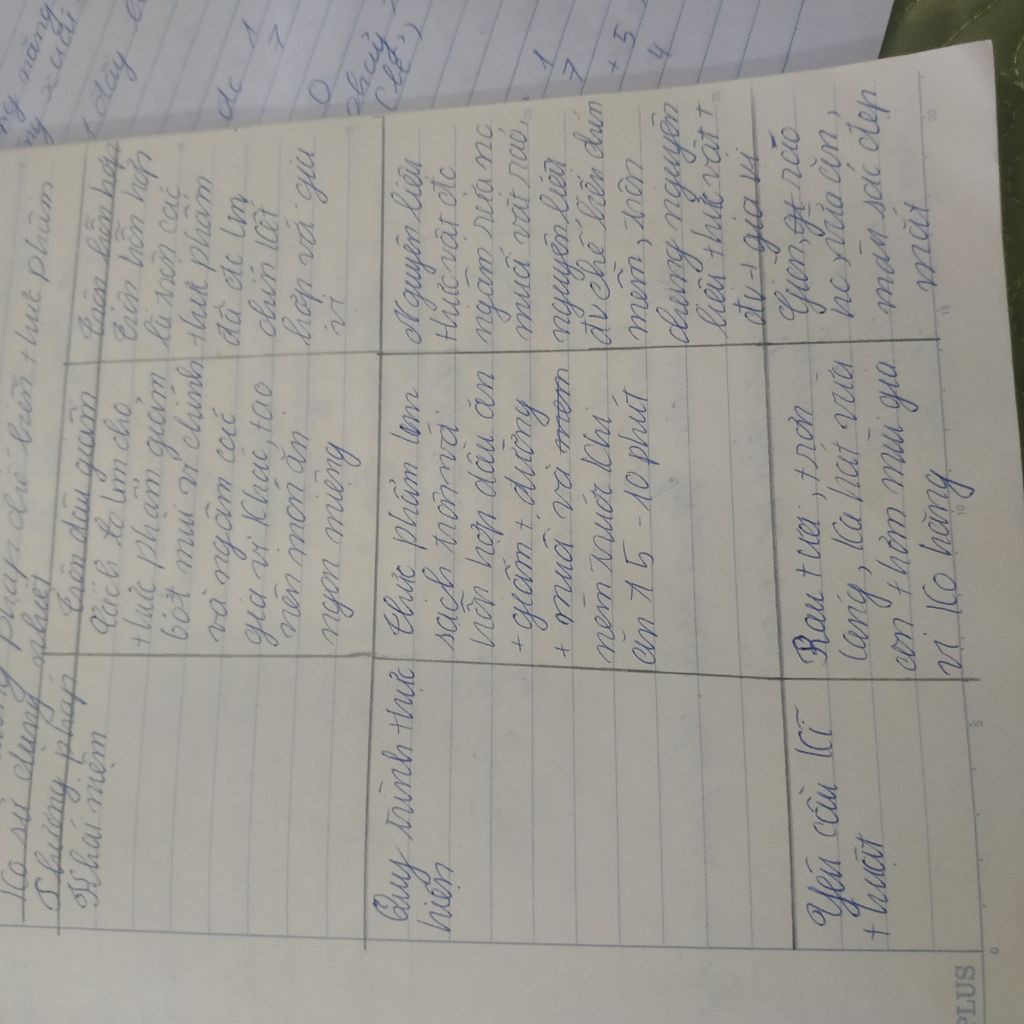 Ko sử dụng nhiệt
phương pháp chế biến thực phẩm
Phương pháp
Trộn dầu giấm
Trộn hỗn hợp
Khái niệm
Cách to lm cho
thực phẩm giảm
bớt mùi vị chính
và ngấm các
gia vị khác, tạo
nên món ăn
ngon miệng
Trộn hỗn hợp
là trộn các
thực phẩm
đã đc lm
chín kết
hợp vs gia
vị
Quy trình thực
hiện
thực phẩm lm
sạch trộn với
hỗn hợp dầu ăn
+ giấm + đường
+ muối và
nêm trước khi
ăn 5 - 10 phút
Nguyên liệu
thực vật đc
ngâm rửa nc
muối vớt ráo,
nguyên liệu
đv chế biến chín
mềm, trộn
chung nguyên
liệu thực vật +
đv + gia vị
Yêu cầu kĩ
thuật
Rau tươi, trơn
láng, ko nát vừa
ăn thơm mùi gia
vị ko hăng
Giòn, ráo
nc, vừa ăn,
màu sắc đẹp
mắt
PLUS